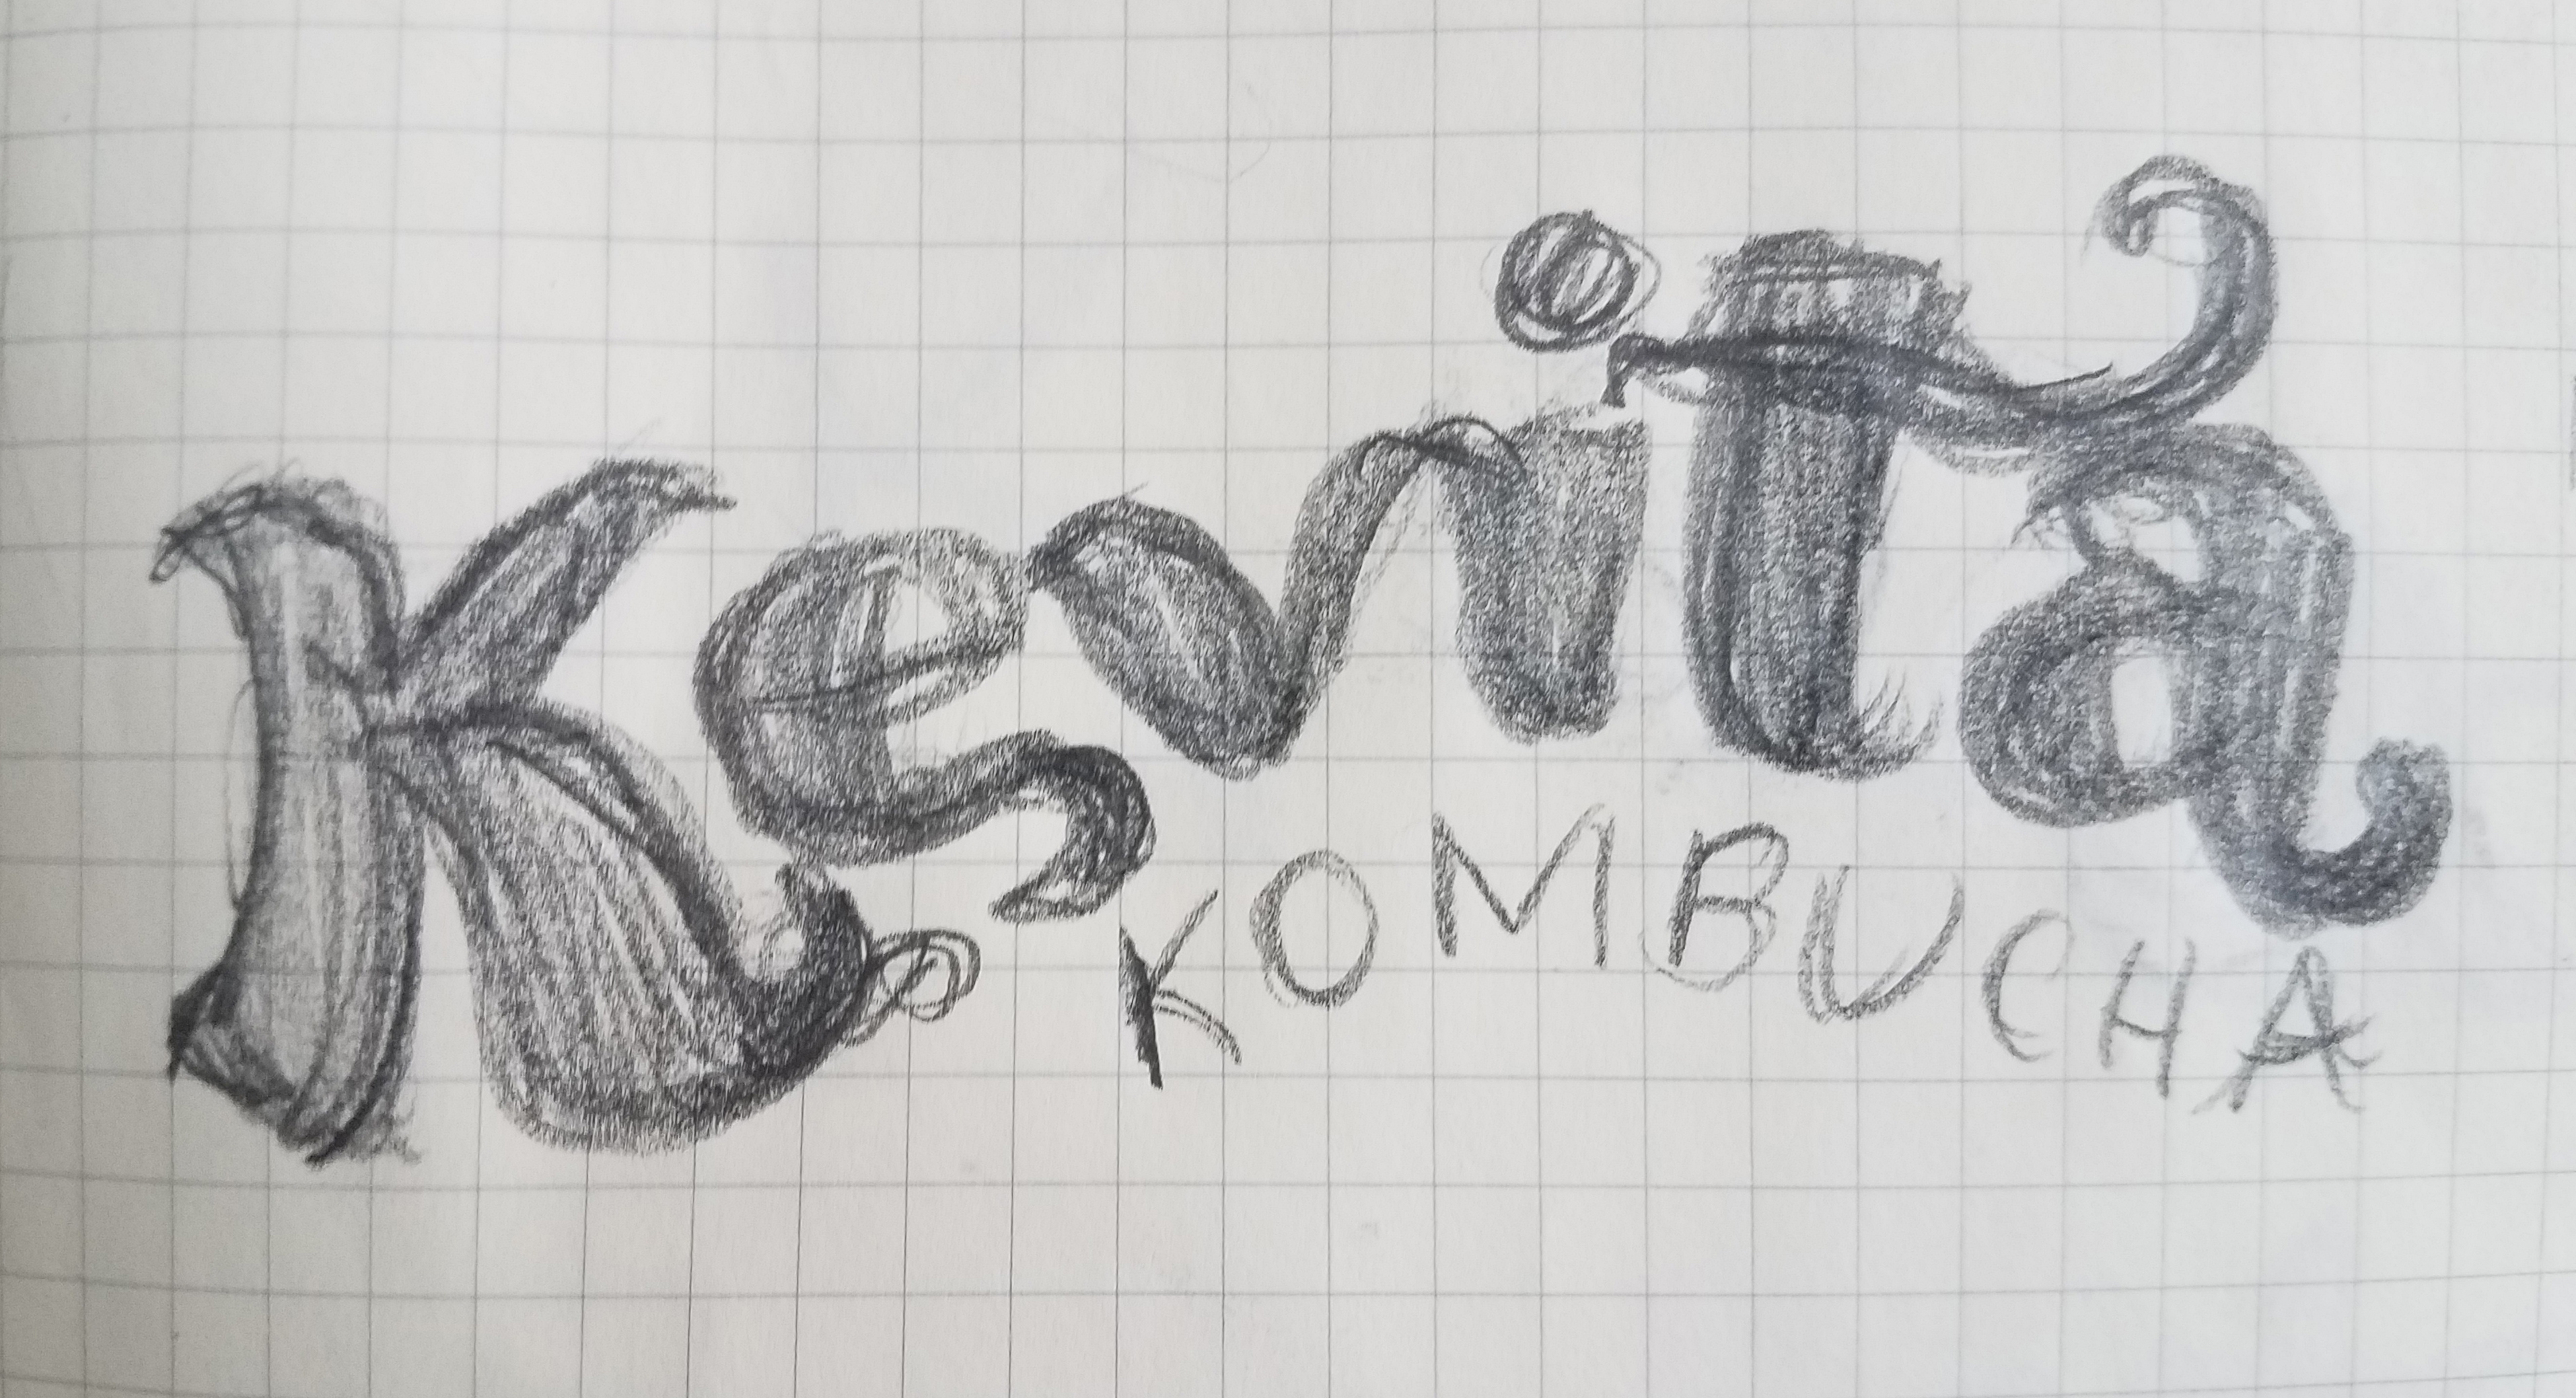 Kevita
KOMBUCHA